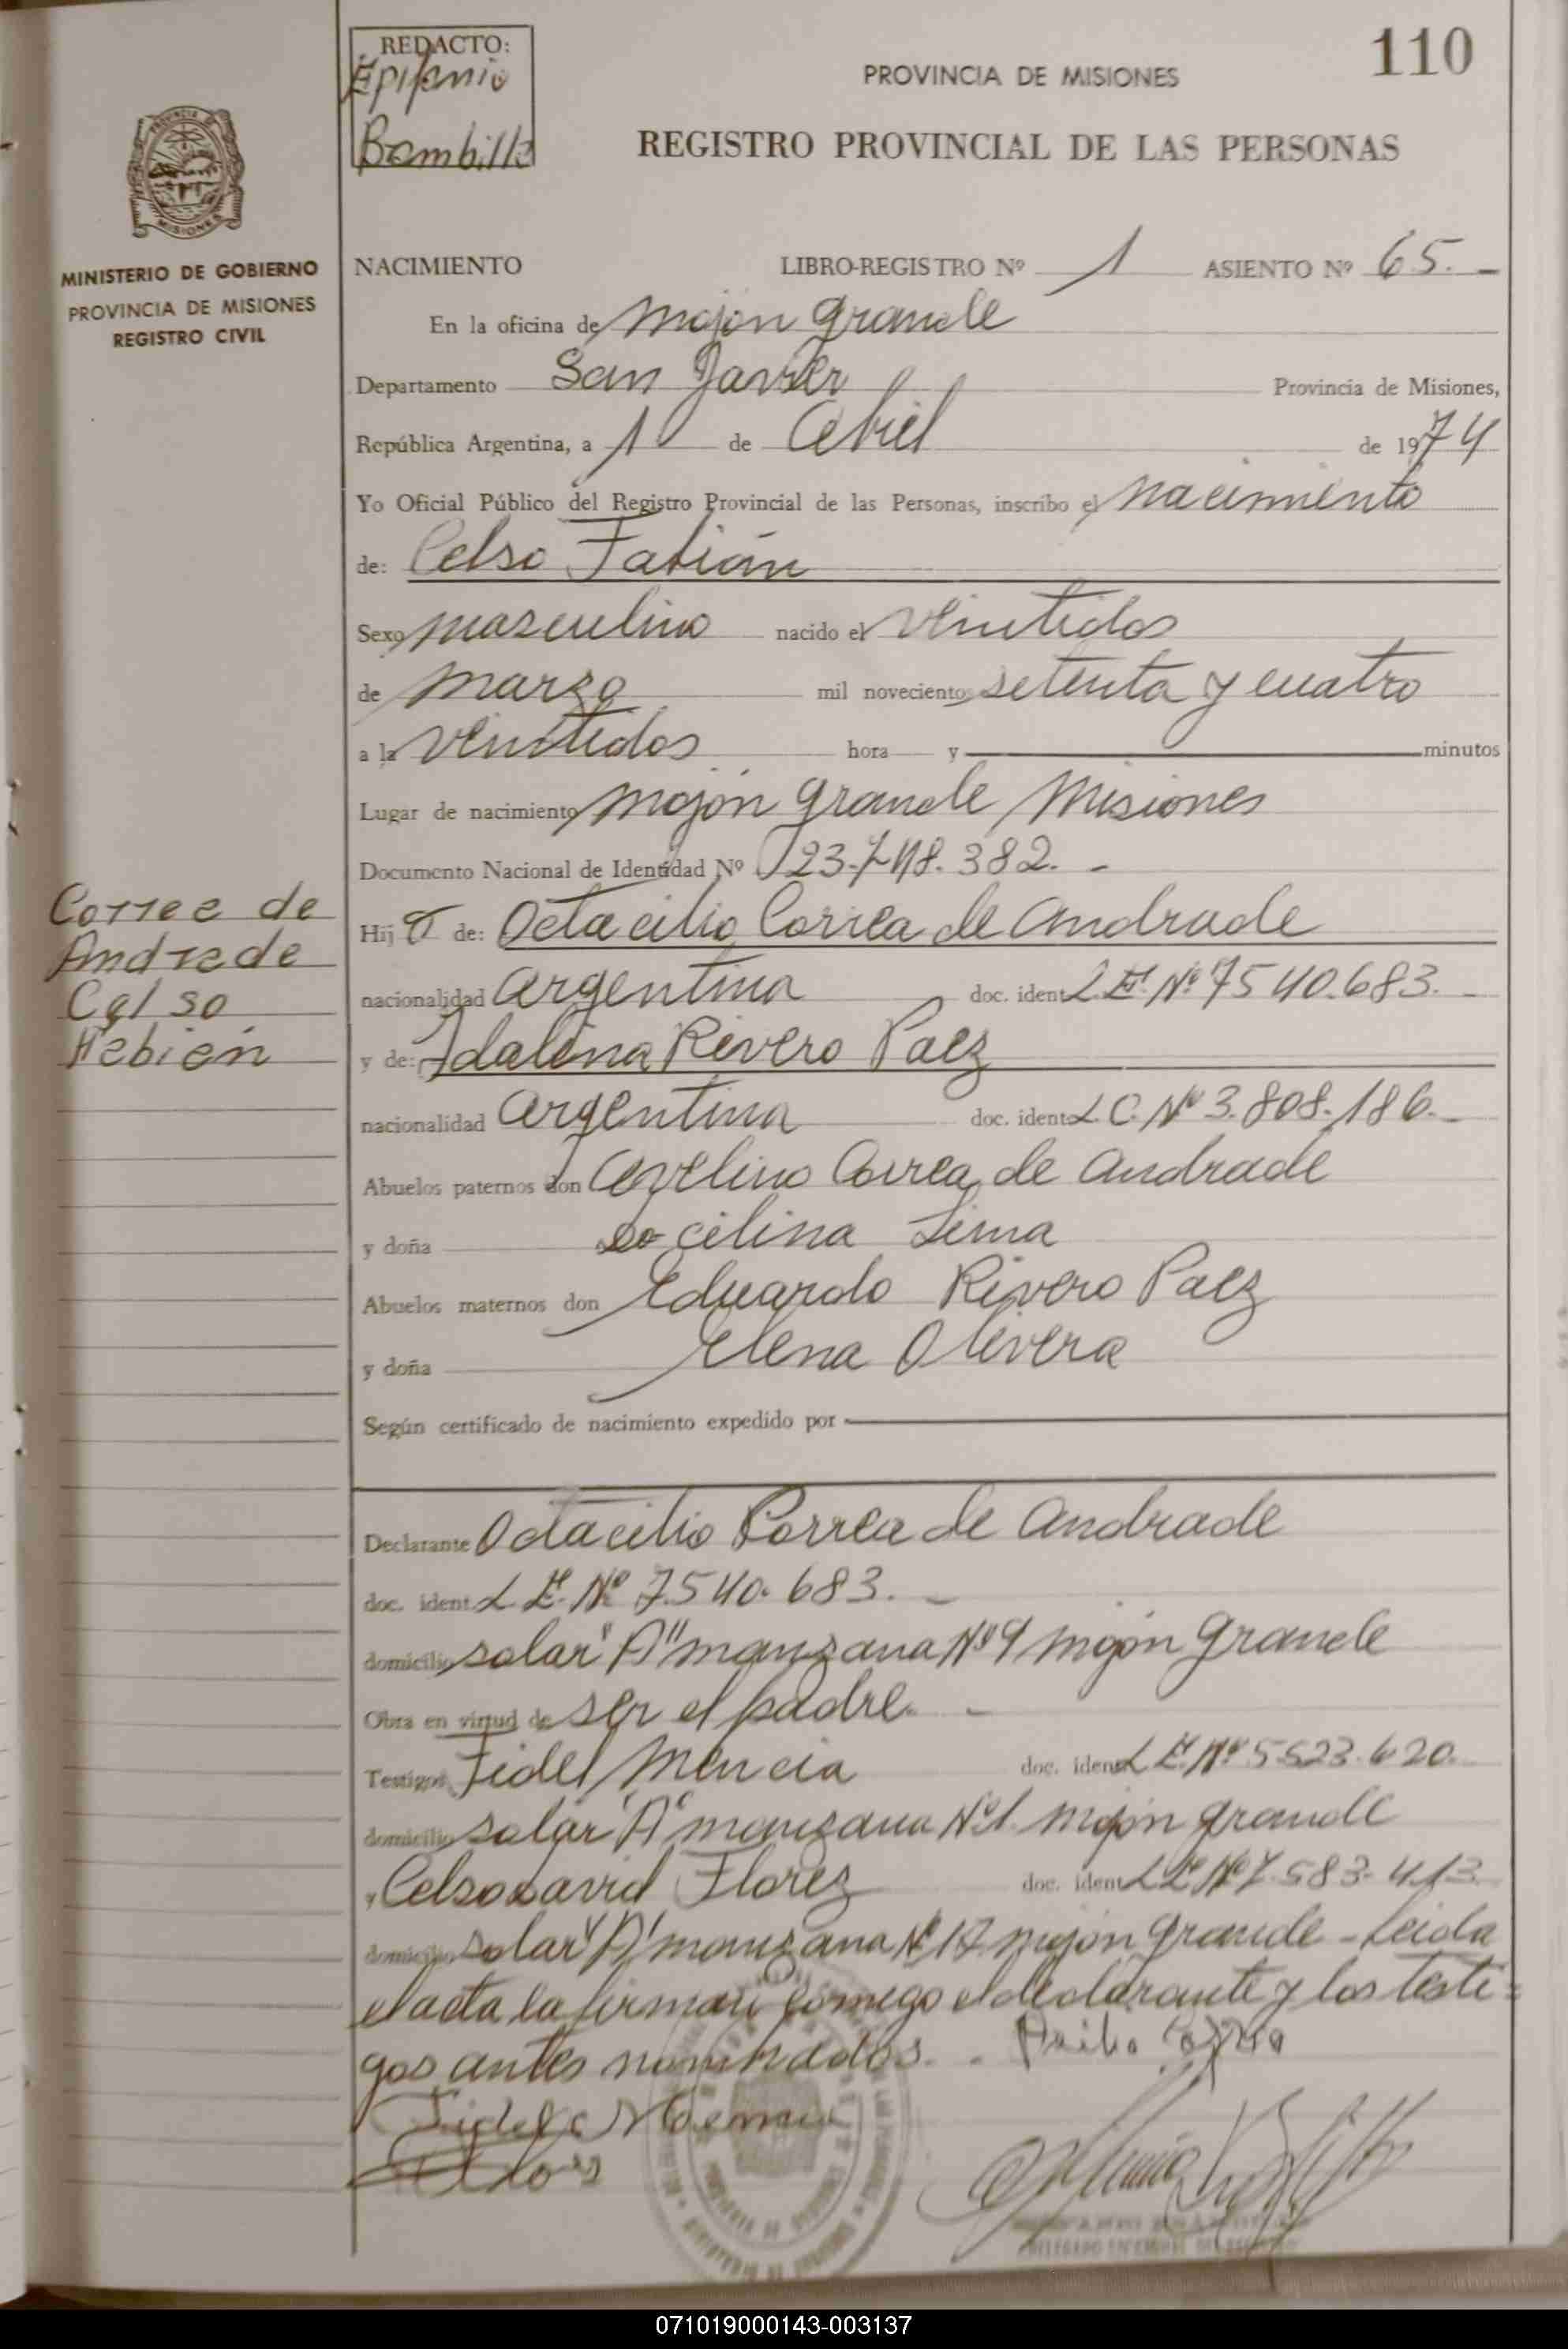 110
REDACTO:
Epifanio
Bambilla
PROVINCIA DE MISIONES
REGISTRO PROVINCIAL DE LAS PERSONAS
MINISTERIO DE GOBIERNO
PROVINCIA DE MISIONES
REGISTRO CIVIL
NACIMIENTO LIBRO-REGISTRO Nº 1 ASIENTO Nº 65.-
En la oficina de Mojón Grande
Departamento San Javier Provincia de Misiones,
República Argentina, a 1º de Abril de 1974
Yo Oficial Público del Registro Provincial de las Personas, inscribo el nacimiento
de: Celso Fabián
Sexo masculino nacido el veintidos
de marzo mil novecientos setenta y cuatro
a la veintidos hora y minutos
Lugar de nacimiento Mojón Grande Misiones
Documento Nacional de Identidad Nº 23.748.382.-
Correa de
Andrade
Celso
Fabián
Hijo de: Octacilio Correa de Andrade
nacionalidad Argentina doc. ident. L.E. Nº 7540.683.-
y de: Idalina Rivero Paez
nacionalidad Argentina doc. ident. L.C. Nº 3.808.186.-
Abuelos paternos don Avelino Correa de Andrade
y doña Lima
Abuelos maternos don Eduardo Rivero Paez
y doña Elena Olivera
Según certificado de nacimiento expedido por
Declarante Octacilio Correa de Andrade
doc. ident. L.E. Nº 7.540.683.-
domicilio solar "A" manzana Nº 9 Mojón Grande
Obra en virtud de ser el padre.-
Testigos Fidel Mencia doc. ident. L.E. Nº 5523.620.
domicilio solar "A" manzana Nº 1. Mojón Grande
y Celso David Florez doc. ident. L.E. Nº 7.583.413.
domicilio solar "A" manzana Nº 17 Mojón Grande - Leida
el acta la firman comigo el declarante y los testi=
gos antes nombrados.-
071019000143-003137